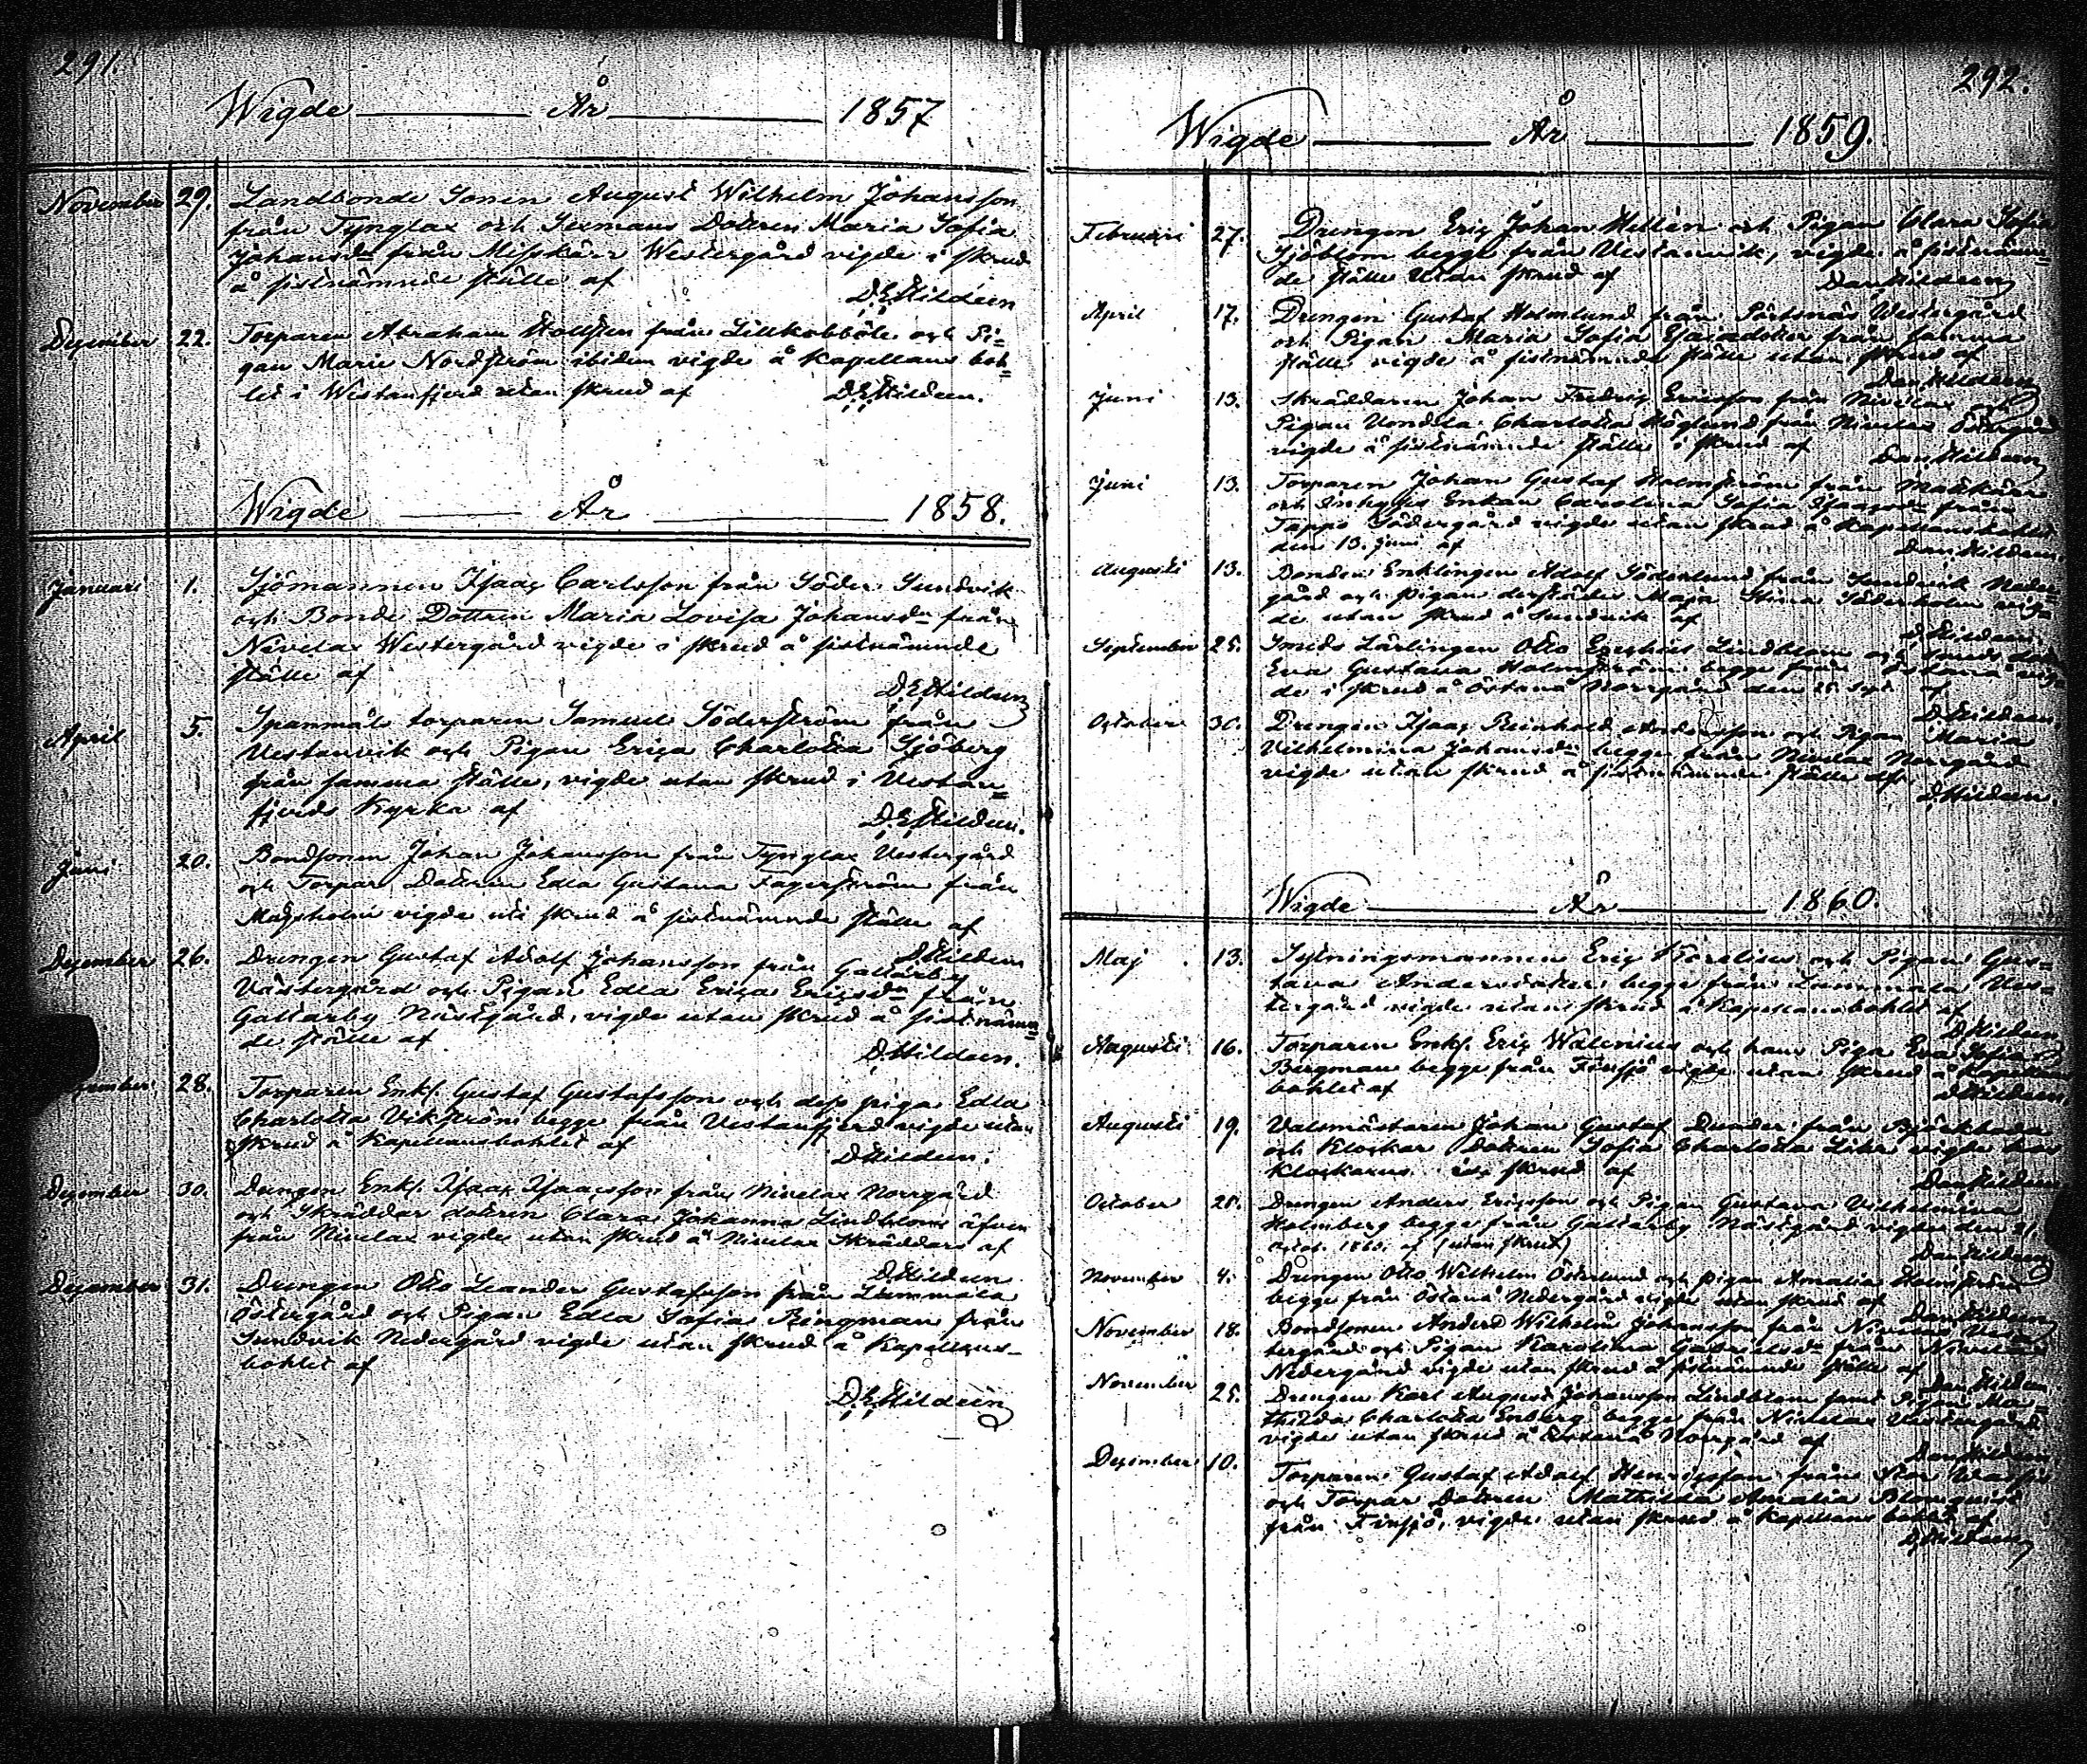 291.
Wigde År 1857
November 29. Landbonde Sonen August Wilhelm Johansson
från Tynglax och Sexmans Dottren Maria Sofia
Johansdr från Misskärr Westergård vigde i skrud
å sistnämnde ställe af
D.E.Hildeen
December 22. Torparen Abraham från Lillkobböle och Pi=
gan Maria Nordström ibidem vigde å Kapellans boh=
let i Westanfjerd utan skrud af
D.E.Hildeen.
Wigde År 1858.
Januari 1. Sjömannen Isaac Carlsson från Söder Sundvik
och Bonde Dottren Maria Lovisa Johansdr från
Nivelax Westergård vigde i skrud å sistnämnde
ställe af
D.E.Hildeen
April 5. Spanmåls torparen Samuel Söderström från
Vestanvik och Pigan Erica Charlotta Sjöberg
från samma ställe, vigde utan skrud i Vestan=
fjerds Kyrka af
D.E.Hildeen.
Juni 20. Bondsonen Johan Johansson från Tynglax Vestergård
och Torpar Dottren Edla Gustava Fagerström från
vigde uti skrud å sistnämnde ställe af
D.Hildeen
December 26. Drengen Gustaf Adolf Johansson från Galtarby
Västergård och Pigan Edla Erica Ericsdr från
Galtarby Näsigård, vigde utan skrud å sistnämn=
de ställe af
D.Hildeen.
28. Torparen Enkl. Gustaf Gustafsson och dess piga Edla
Charlotta Vikström begge från Vestanfjerd vigde utan
skrud å Kapellansbohlet af
D.Hildeen.
December 30. Drengen Enkl. Isaac Isaacsson från Nivelax Norrgård
och Skräddar dottren Clara Johanna Lindblom äfven
från Nivelax vigde utan skrud å Nivelax Skräddars af
D.Hildeen
December 31. Drengen Otto Leander Gustafsson från Lammala
Östergård och Pigan Edla Sofia Ringman från
Sundvik Nedergård vigde utan skrud å Kapellans-
bohlet af
D.E.Hildeen
292.
Wigde År 1859.
Februari 27. Drengen Eric Johan Hellén och Pigan Clara Sofia
Sjöblom begge från Vestanvik, vigde å sistnämn=
de ställe utan skrud af
Dan.Hildeen
April 17. Drengen Gustaf Holmlund från Pörtsnäs Westergård
och Pigan Maria Sofia från samma
ställe vigde å sistnämnde ställe utan skrud af
Dan.Hildeen
Juni 13. Skräddaren Johan Fredric Ericsson från Nivelax och
Pigan Vendla Charlotta Höglund från Nivelax
vigde å sistnämnde ställe i skrud af
Dan.Hildeen
Juni 13. Torparen Johan Gustaf Holmström från
och Inhyses Enkan Carolina Sofia Isaacsdr från
Tappo Södergård vigde utan skrud å Kapellansbohlet
den 13. Juni af
Dan.Hildeen.
Augusti 13. Bonden Enklingen Adolf Söderlund från Sundvik Neder-
gård och pigan derstädes Maja Stina Söderholm vig-
de utan skrud å Sundvik af
D.Hildeen.
September 25. Smeds Lärlingen Otto Lindblom och
Eva Gustava Holmström begge från Östanå vig-
de i skrud å Östanå Norrgård den 25 Sept. af
D.Hildeen.
October 30. Drengen Isaac Reinhold Andersson och Pigan Maria
Vilhelmina Johansdr begge från Nivelax Norrgård
vigde utan skrud å sistnämnde ställe af
D.Hildeen.
Wigde År 1860.
Maj 13. Sytningsmannen Eric och Pigan Gus=
tava Andersdotter begge från Lammala Ves=
tergård vigde utan skrud å Kapellansbohlet af
D.Hildeen
Augusti 16. Torparen Enkl. Eric Walenius och hans Piga Eva Sofia
Bergman begge från Finsjö vigde utan skrud å Kapellans
bohlet af
D.Hildeen
Augusti 19. Valsmästaren Johan Gustaf Dunder från Björkboda
och Klockar Dottren Sofia Charlotta Lihr vigde hos
Klockarens i skrud af
Dan.Hildeen
October 20. Drengen Anders Ericsson och Pigan Gustava Vilhelmina
Holmberg begge från Galtarby Näsigård vigde den 21.
Octob. 1860. af (utan skrud)
Dan.Hildeen
November 4. Drengen Otto Wilhelm Österlund och pigan Amalia Holmström
begge från Östanå Nedergård vigde utan skrud af
Dan.Hildeen
November 18. Bondsonen Anders Wilhelm Johansson från Nivelax Ves-
tergård och Pigan Karolina Gabrielsdr från Nivelax
Nedergård vigde utan skrud å sistnämnde ställe af
Dan.Hildeen
November 25. Drengen Karl August Johansson Lindblom samt Pigan Ma=
thilda Charlotta Enberg begge från Nivelax Vestergård
vigde utan skrud å Östanå Norrgård af
Dan.Hildeen
December 10. Torparen Gustaf Adolf Henricsson från Stor
och Torpar Dottren Mathilda Amalia Blomqvist
från Finsjö, vigde utan skrud å Kapellans bohlet af
D.Hildeen